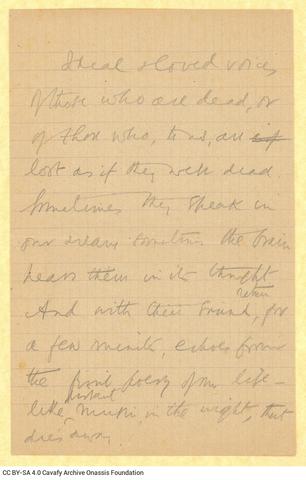 Ideal & loved voices
of those who are dead, or
of those who, to us, are if
lost as if they were dead.
Sometimes they speak in
our dreams sometimes the brain
hears them in its thought
return
And with their sound, for
a few minutes, echoes from
the first poetry of our life —
distant
like music, in the night, that
dies away.
CC BY-SA 4.0 Cavafy Archive Onassis Foundation